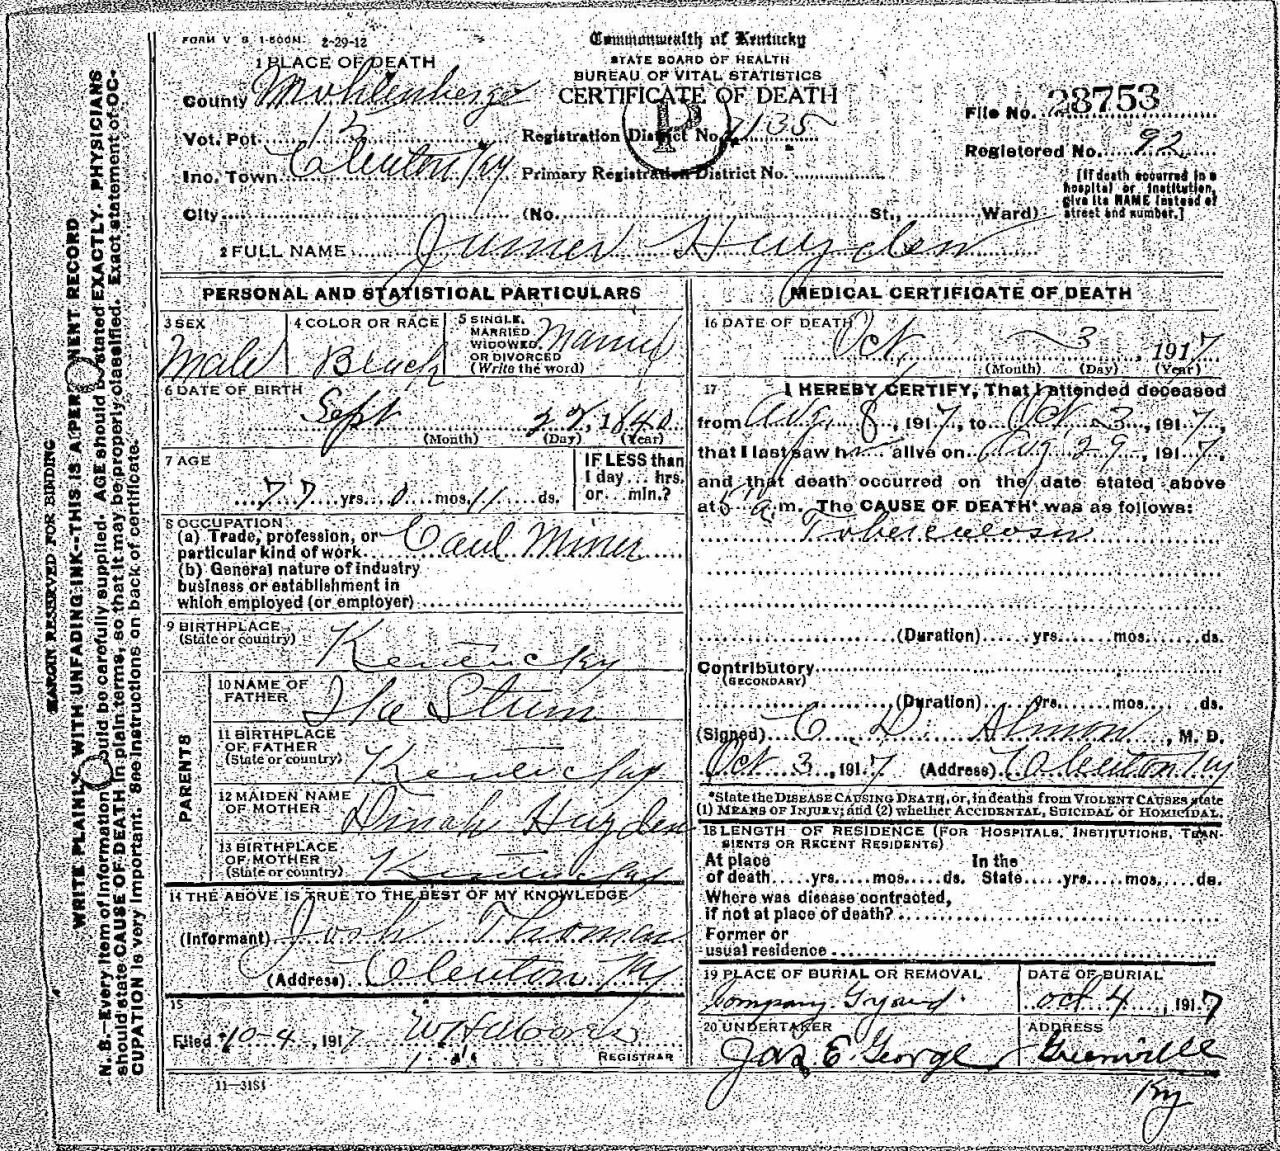 FORM V. S. 1-500M. 2-29-12
Commonwealth of Kentucky
STATE BOARD OF HEALTH
BUREAU OF VITAL STATISTICS
CERTIFICATE OF DEATH
1 PLACE OF DEATH
County Mohlenberg
Vot. Pct. 15
Inc. Town Cleaton Ky
City (No. St., Ward)
Registration District No. 1135
P
Primary Registration District No.
File No. 28753
Registered No. 92
[If death occurred in a
hospital or institution,
give its NAME instead of
street and number.]
2 FULL NAME Junier Hayden
PERSONAL AND STATISTICAL PARTICULARS
3 SEX
Male
4 COLOR OR RACE
Black
5 SINGLE,
MARRIED
WIDOWED,
OR DIVORCED
(Write the word)
Married
6 DATE OF BIRTH
Sept 22, 1840
(Month) (Day) (Year)
7 AGE
77 yrs. 0 mos. 11 ds.
IF LESS than
1 day... hrs.
or... min.?
8 OCCUPATION
(a) Trade, profession, or
particular kind of work Caul Miner
(b) General nature of industry
business or establishment in
which employed (or employer)
9 BIRTHPLACE
(State or country)
Kentucky
PARENTS
10 NAME OF
FATHER
Ike Strum
11 BIRTHPLACE
OF FATHER
(State or country)
Kentucky
12 MAIDEN NAME
OF MOTHER
Dinah Hayden
13 BIRTHPLACE
OF MOTHER
(State or country)
Kentucky
14 THE ABOVE IS TRUE TO THE BEST OF MY KNOWLEDGE
(Informant) Josh Thomas
(Address) Cleaton Ky
15
Filed 10-4, 1917
REGISTRAR
11—3184
MEDICAL CERTIFICATE OF DEATH
16 DATE OF DEATH
Oct 3, 1917
(Month) (Day) (Year)
17 I HEREBY CERTIFY, That I attended deceased
from Aug 8, 1917, to Oct 3, 1917,
that I last saw h alive on Aug 29, 1917,
and that death occurred on the date stated above
at 5 a.m. The CAUSE OF DEATH* was as follows:
Toberculosis
(Duration) yrs. mos. ds.
Contributory
(SECONDARY)
(Duration) yrs. mos. ds.
(Signed) C. D. Almon, M. D.
Oct 3, 1917 (Address) Cleaton Ky
*State the DISEASE CAUSING DEATH, or, in deaths from VIOLENT CAUSES state
(1) MEANS OF INJURY; and (2) whether ACCIDENTAL, SUICIDAL or HOMICIDAL.
18 LENGTH OF RESIDENCE (FOR HOSPITALS, INSTITUTIONS, TRAN-
SIENTS OR RECENT RESIDENTS)
At place In the
of death yrs. mos. ds. State yrs. mos. ds.
Where was disease contracted,
if not at place of death?
Former or
usual residence
19 PLACE OF BURIAL OR REMOVAL
Company Gyard
DATE OF BURIAL
Oct 4, 1917
20 UNDERTAKER
Jas E George
ADDRESS
Greenville
Ky
MARGIN RESERVED FOR BINDING
WRITE PLAINLY WITH UNFADING INK--THIS IS A PERMANENT RECORD
N. B.—Every item of information should be carefully supplied. AGE should be stated EXACTLY. PHYSICIANS
should state CAUSE OF DEATH in plain terms, so that it may be properly classified. Exact statement of OC-
CUPATION is very important. See instructions on back of certificate.